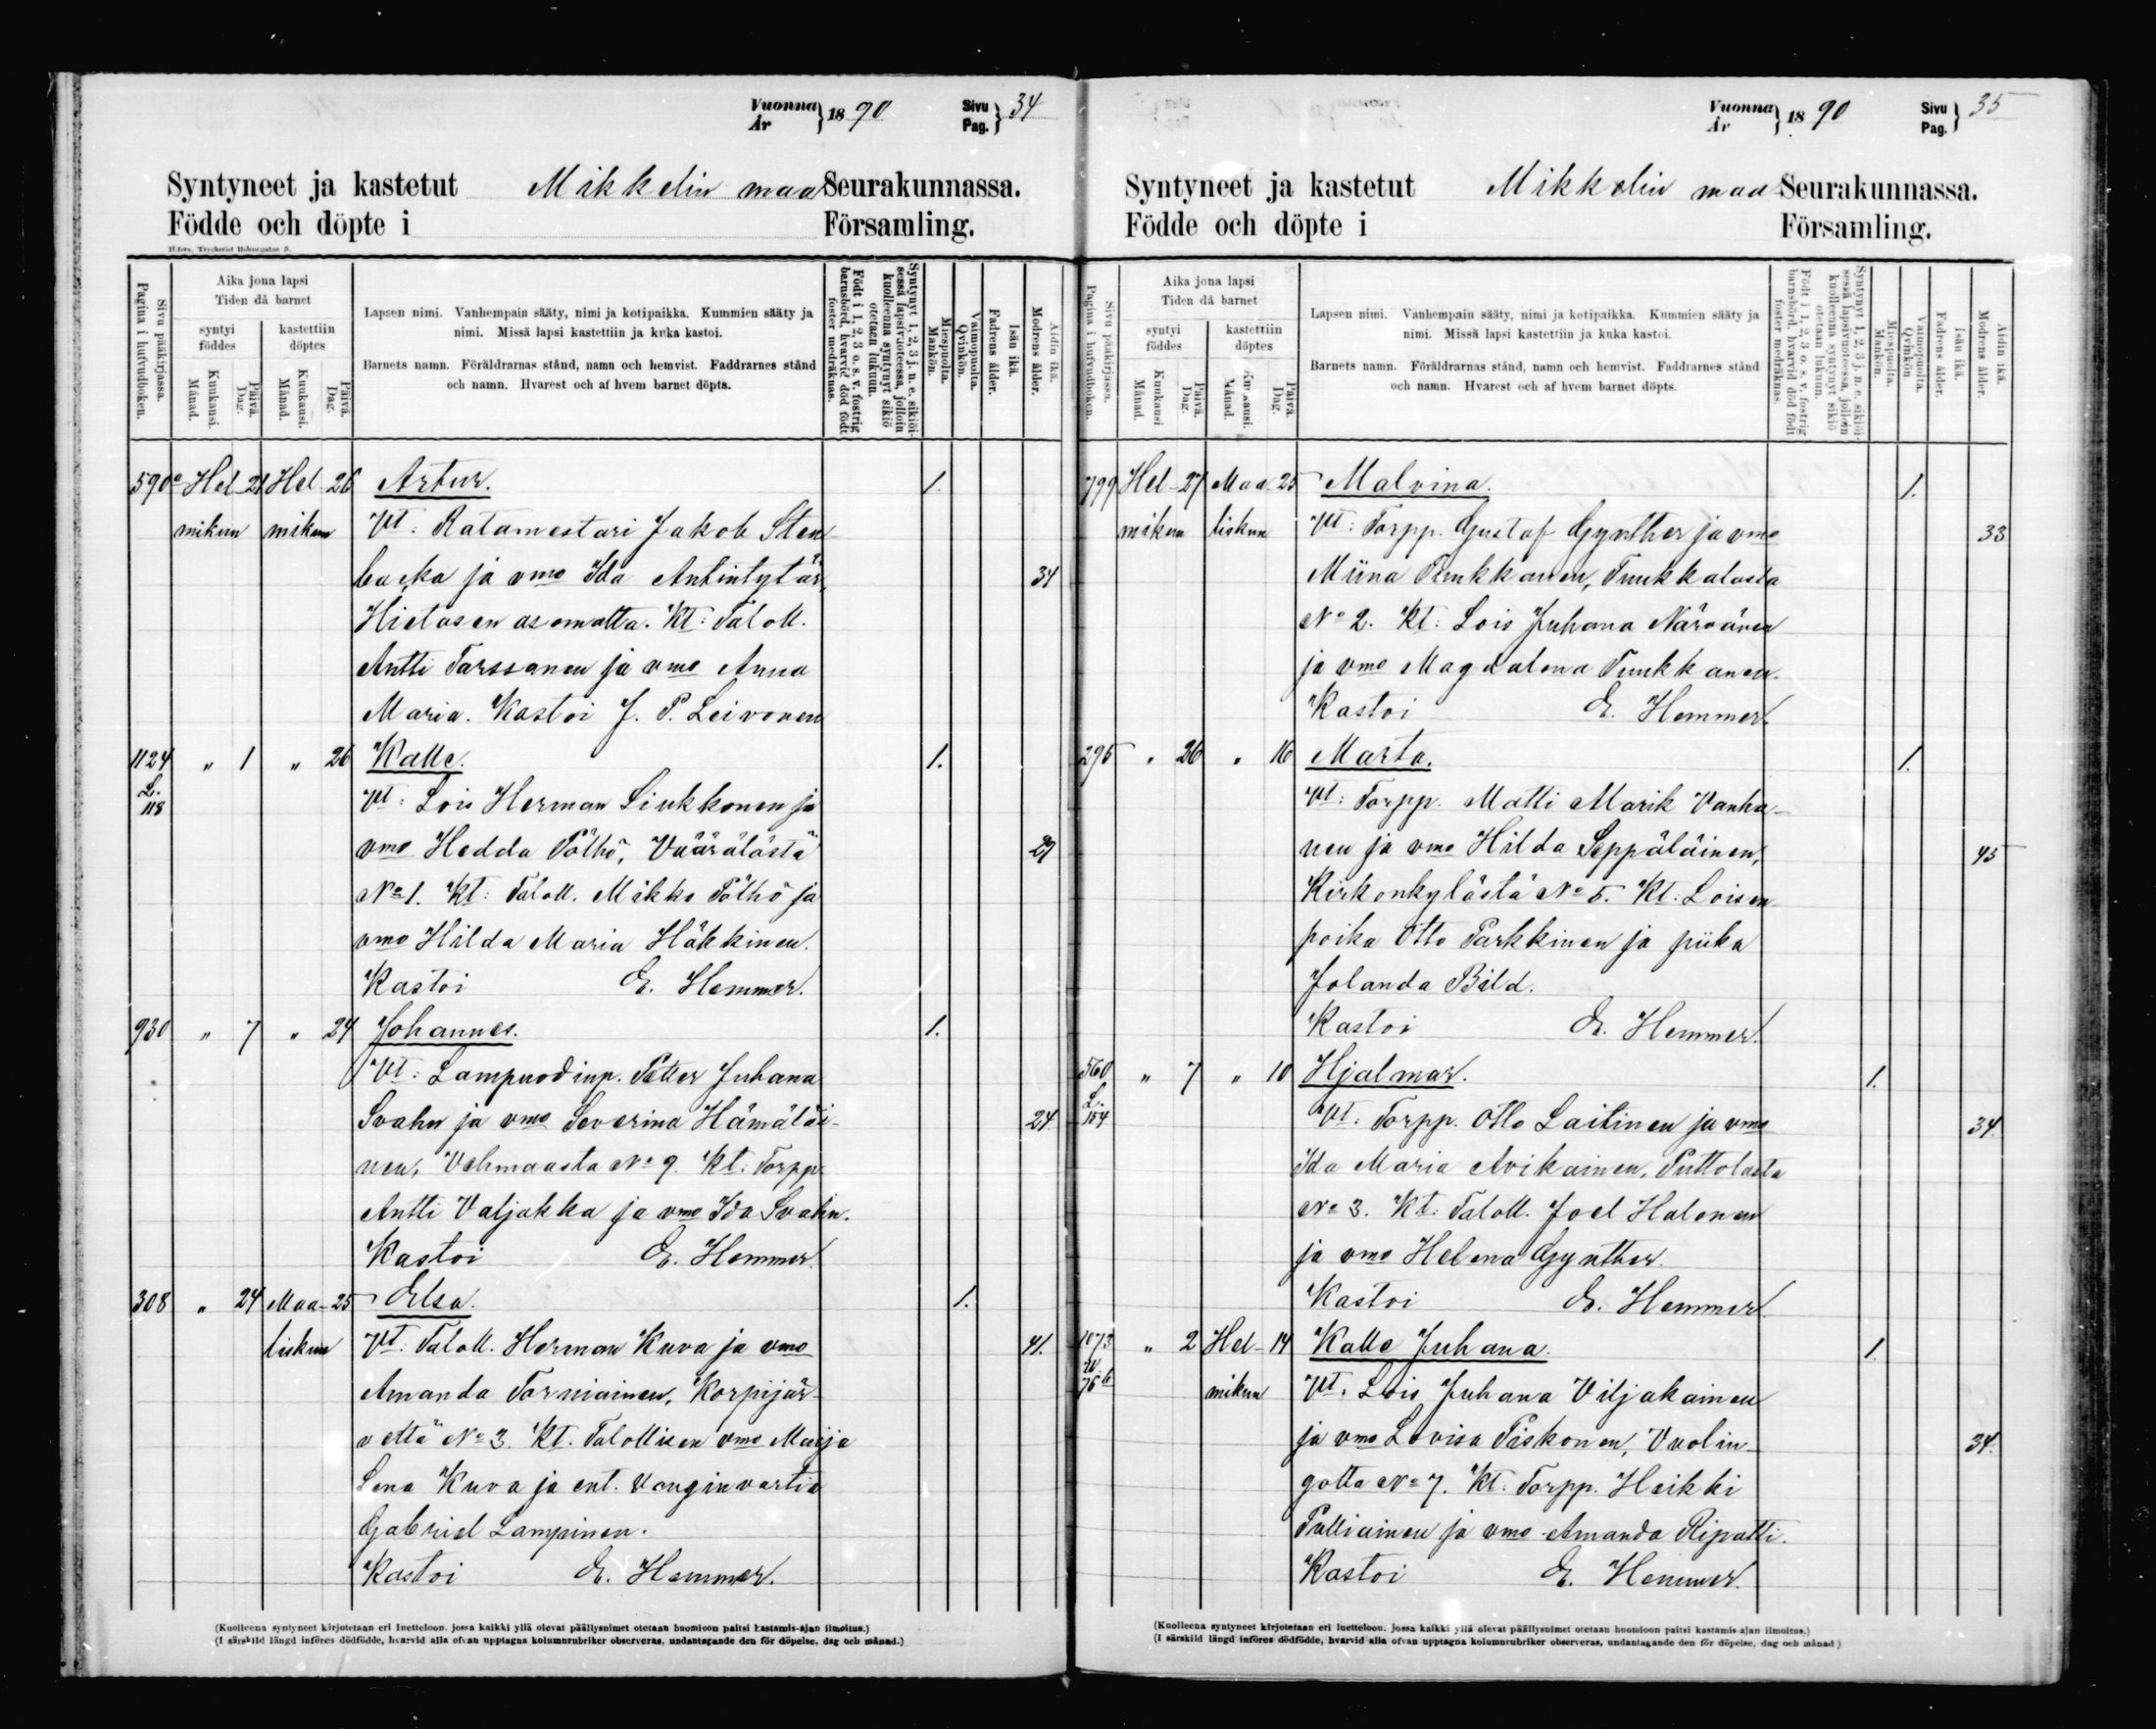 Vuonna År } 1890 Sivu Pag. } 34
Syntyneet ja kastetut Mikkelin maa Seurakunnassa.
Födde och döpte i Församling.
H:fors, Tryckeriet Helenegatan 3.
Sivu pääkirjassa. Pagina i hufvudboken.
Aika jona lapsi
Tiden då barnet
syntyi
föddes
kastettiin
döptes
Kuukausi. Månad.
Päivä. Dag.
Kuukausi. Månad.
Päivä. Dag.
Lapsen nimi. Vanhempain sääty, nimi ja kotipaikka. Kummien sääty ja
nimi. Missä lapsi kastettiin ja kuka kastoi.
Barnets namn. Föräldrarnas stånd, namn och hemvist. Faddrarnes stånd
och namn. Hvarest och af hvem barnet döpts.
Syntynyt 1, 2, 3 j. n. e. sikiöi-
sessä lapsivuoteessa, jolloin
kuolleena syntynyt sikiö
otetaan lukuun.
Födt i 1, 2, 3 o. s. v. fostrig
barnsbörd, hvarvid död född
foster medräknas.
Miespuolta. Mankön.
Vaimopuolta. Qvinkön.
Isän ikä. Fadrens ålder.
Äidin ikä. Modrens ålder.
590 a Hel- 21 Hel- 26 Artur. 1.
mikun mikun Vt. Ratamestari Jakob Sten
backa ja vmo Ida Antintytär 34
Hietasen asemalta. Kt: Taloll.
Antti Tarssanen ja vmo Anna
Maria. Kastoi J. P. Leivonen
1124 " 1 " 26 Kalle. 1.
L. 118 Vt: Lois Herman Liukkonen ja
vmo Hedda Pöthö, Väärälästä 29
No 1. Kt: Taloll. Mikko Pöthö ja
vmo Hilda Maria Häkkinen.
Kastoi E. Hemmer.
930 " 7 " 24 Johannes. 1.
Vt: Lampuodinp. Petter Juhana
Svahn ja vmo Severina Hämäläi- 24
nen, Vehmaasta No 9. Kt: Torpp.
Antti Valjakka ja vmo Ida Svahn.
Kastoi E. Hemmer.
308 " 24 Maa- 25 Elsa. 1.
liskun Vt: Taloll. Herman Kuva ja vmo 41.
Amanda Torniainen, Korpijär-
veltä No 3. Kt. Talollisen vmo Maija
Lena Kuva ja ent. Vanginvartia
Gabriel Lampinen.
Kastoi E. Hemmer.
(Kuolleena syntyneet kirjotetaan eri luetteloon, jossa kaikki yllä olevat päällysnimet otetaan huomioon paitsi kastamis-ajan ilmoitus.)
(I särskild längd införes dödfödde, hvarvid alla ofvan upptagna kolumnrubriker observeras, undantagande den för döpelse, dag och månad.)
Vuonna År } 1890 Sivu Pag. } 35
Syntyneet ja kastetut Mikkelin maa Seurakunnassa.
Födde och döpte i Församling.
Sivu pääkirjassa. Pagina i hufvudboken.
Aika jona lapsi
Tiden då barnet
syntyi
föddes
kastettiin
döptes
Kuukausi Månad.
Päivä. Dag.
Kuukausi. Månad.
Päivä. Dag.
Lapsen nimi. Vanhempain sääty, nimi ja kotipaikka. Kummien sääty ja
nimi. Missä lapsi kastettiin ja kuka kastoi.
Barnets namn. Föräldrarnas stånd, namn och hemvist. Faddrarnes stånd
och namn. Hvarest och af hvem barnet döpts.
Syntynyt 1, 2, 3 j. n. e. sikiöi-
sessä lapsivuoteessa, jolloin
kuolleena syntynyt sikiö
otetaan lukuun.
Födt i 1, 2, 3 o. s. v. fostrig
barnsbörd, hvarvid död född
foster medräknas.
Miespuolta. Mankön.
Vaimopuolta. Qvinkön.
Isän ikä. Fadrens ålder.
Äidin ikä. Modrens ålder.
799 Hel- 27 Maa- 25 Malvina. 1.
mikun liskun Vt: Torpp. Gustaf Gynther ja vmo 33
Miina Tuukkanen, Tuukkalasta
No 2. Kt: Lois Juhana Närvänen
ja vmo Magdalena Tuukkanen.
Kastoi E. Hemmer.
295 " 26 " 16 Marta. 1.
Vt: Torpp. Matti Marik Vanha-
nen ja vmo Hilda Seppäläinen, 45
Kirkonkylästä No 5. Kt: Loisen
poika Otto Parkkinen ja piika
Jolanda Bild.
Kastoi E. Hemmer.
560 " 7 " 10 Hjalmar. 1.
L. 154 Vt: Torpp. Otto Laitinen ja vmo 34.
Ida Maria Avikainen, Puttolasta
No 3. Kt: Taloll. Joel Halonen
ja vmo Helena Gynther.
Kastoi E. Hemmer.
1073 " 2 Hel- 14 Kalle Juhana. 1.
76 b mikun Vt. Lois Juhana Viljakainen
ja vmo Lovisa Piskonen, Vuolin- 34.
gotta No 7. Kt. Torpp. Heikki
Pulliainen ja vmo Amanda Ripatti.
Kastoi E. Hemmer.
(Kuolleena syntyneet kirjotetaan eri luetteloon, jossa kaikki yllä olevat päällysnimet otetaan huomioon paitsi kastamis-ajan ilmoitus.)
(I särskild längd införes dödfödde, hvarvid alla ofvan upptagna kolumnrubriker observeras, undantagande den för döpelse, dag och månad)